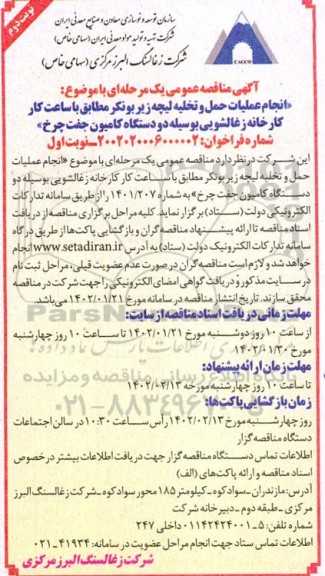 نوبت دوم
سازمان توسعه و نوسازی معادن و صنایع معدنی ایران
شرکت تهیه و تولید مواد معدنی ایران (سهامی خاص)
شرکت زغالسنگ البرز مرکزی (سهامی خاص)
آگهی مناقصه عمومی یک مرحله ای با موضوع:
«انجام عملیات حمل و تخلیه لیچه زیر بونکر مطابق با ساعت کار
کارخانه زغالشویی بوسیله دو دستگاه کامیون جفت چرخ»
شماره فراخوان: ۲۰۰۲۰۲۰۰۰۶۰۰۰۰۰۲-نوبت اول
این شرکت در نظر دارد مناقصه عمومی یک مرحله‌ای با موضوع «انجام عملیات
حمل و تخلیه لیچه زیر بونکر مطابق با ساعت کار کارخانه زغالشویی بوسیله دو
دستگاه کامیون جفت چرخ» به شماره ۱۴۰۱/۲۰۷ را از طریق سامانه تدارکات
الکترونیکی دولت (ستاد) برگزار نماید. کلیه مراحل برگزاری مناقصه از دریافت
اسناد مناقصه تا ارائه پیشنهاد مناقصه گران و بازگشایی پاکت‌ها از طریق درگاه
سامانه تدارکات الکترونیک دولت (ستاد) به آدرس www.setadiran.ir انجام
خواهد شد و لازم است مناقصه گران در صورت عدم عضویت قبلی، مراحل ثبت نام
در سایت مذکور و دریافت گواهی امضای الکترونیکی را جهت شرکت در مناقصه
محقق سازند. تاریخ انتشار مناقصه در سامانه مورخ ۱۴۰۲/۰۱/۲۱ می‌باشد.
مهلت زمانی دریافت اسناد مناقصه از سایت:
از ساعت ۱۰ روز دوشنبه مورخ ۱۴۰۲/۰۱/۲۱ تا ساعت ۱۰ روز چهارشنبه
مورخ ۱۴۰۲/۰۱/۳۰
مهلت زمان ارائه پیشنهاد:
تا ساعت ۱۰ روز چهارشنبه مورخه ۱۴۰۲/۰۲/۱۳
زمان بازگشایی پاکت‌ها:
روز چهارشنبه مورخ ۱۴۰۲/۰۲/۱۳ رأس ساعت ۱۰:۳۰ در سالن اجتماعات
دستگاه مناقصه گزار
اطلاعات تماس دستگاه مناقصه گزار جهت دریافت اطلاعات بیشتر در خصوص
اسناد مناقصه و ارائه پاکت‌های (الف)
آدرس: مازندران-سوادکوه-کیلومتر ۱۸۵ محور سوادکوه-شرکت زغالسنگ البرز
مرکزی-طبقه دوم-دبیرخانه شرکت
شماره تلفن: ۵-۰۱۱۴۲۴۲۴۰۰۱ داخلی ۲۴۷
اطلاعات تماس ستاد جهت انجام مراحل عضویت در سامانه: ۴۱۹۳۴-۰۲۱
شرکت زغالسنگ البرز مرکزی